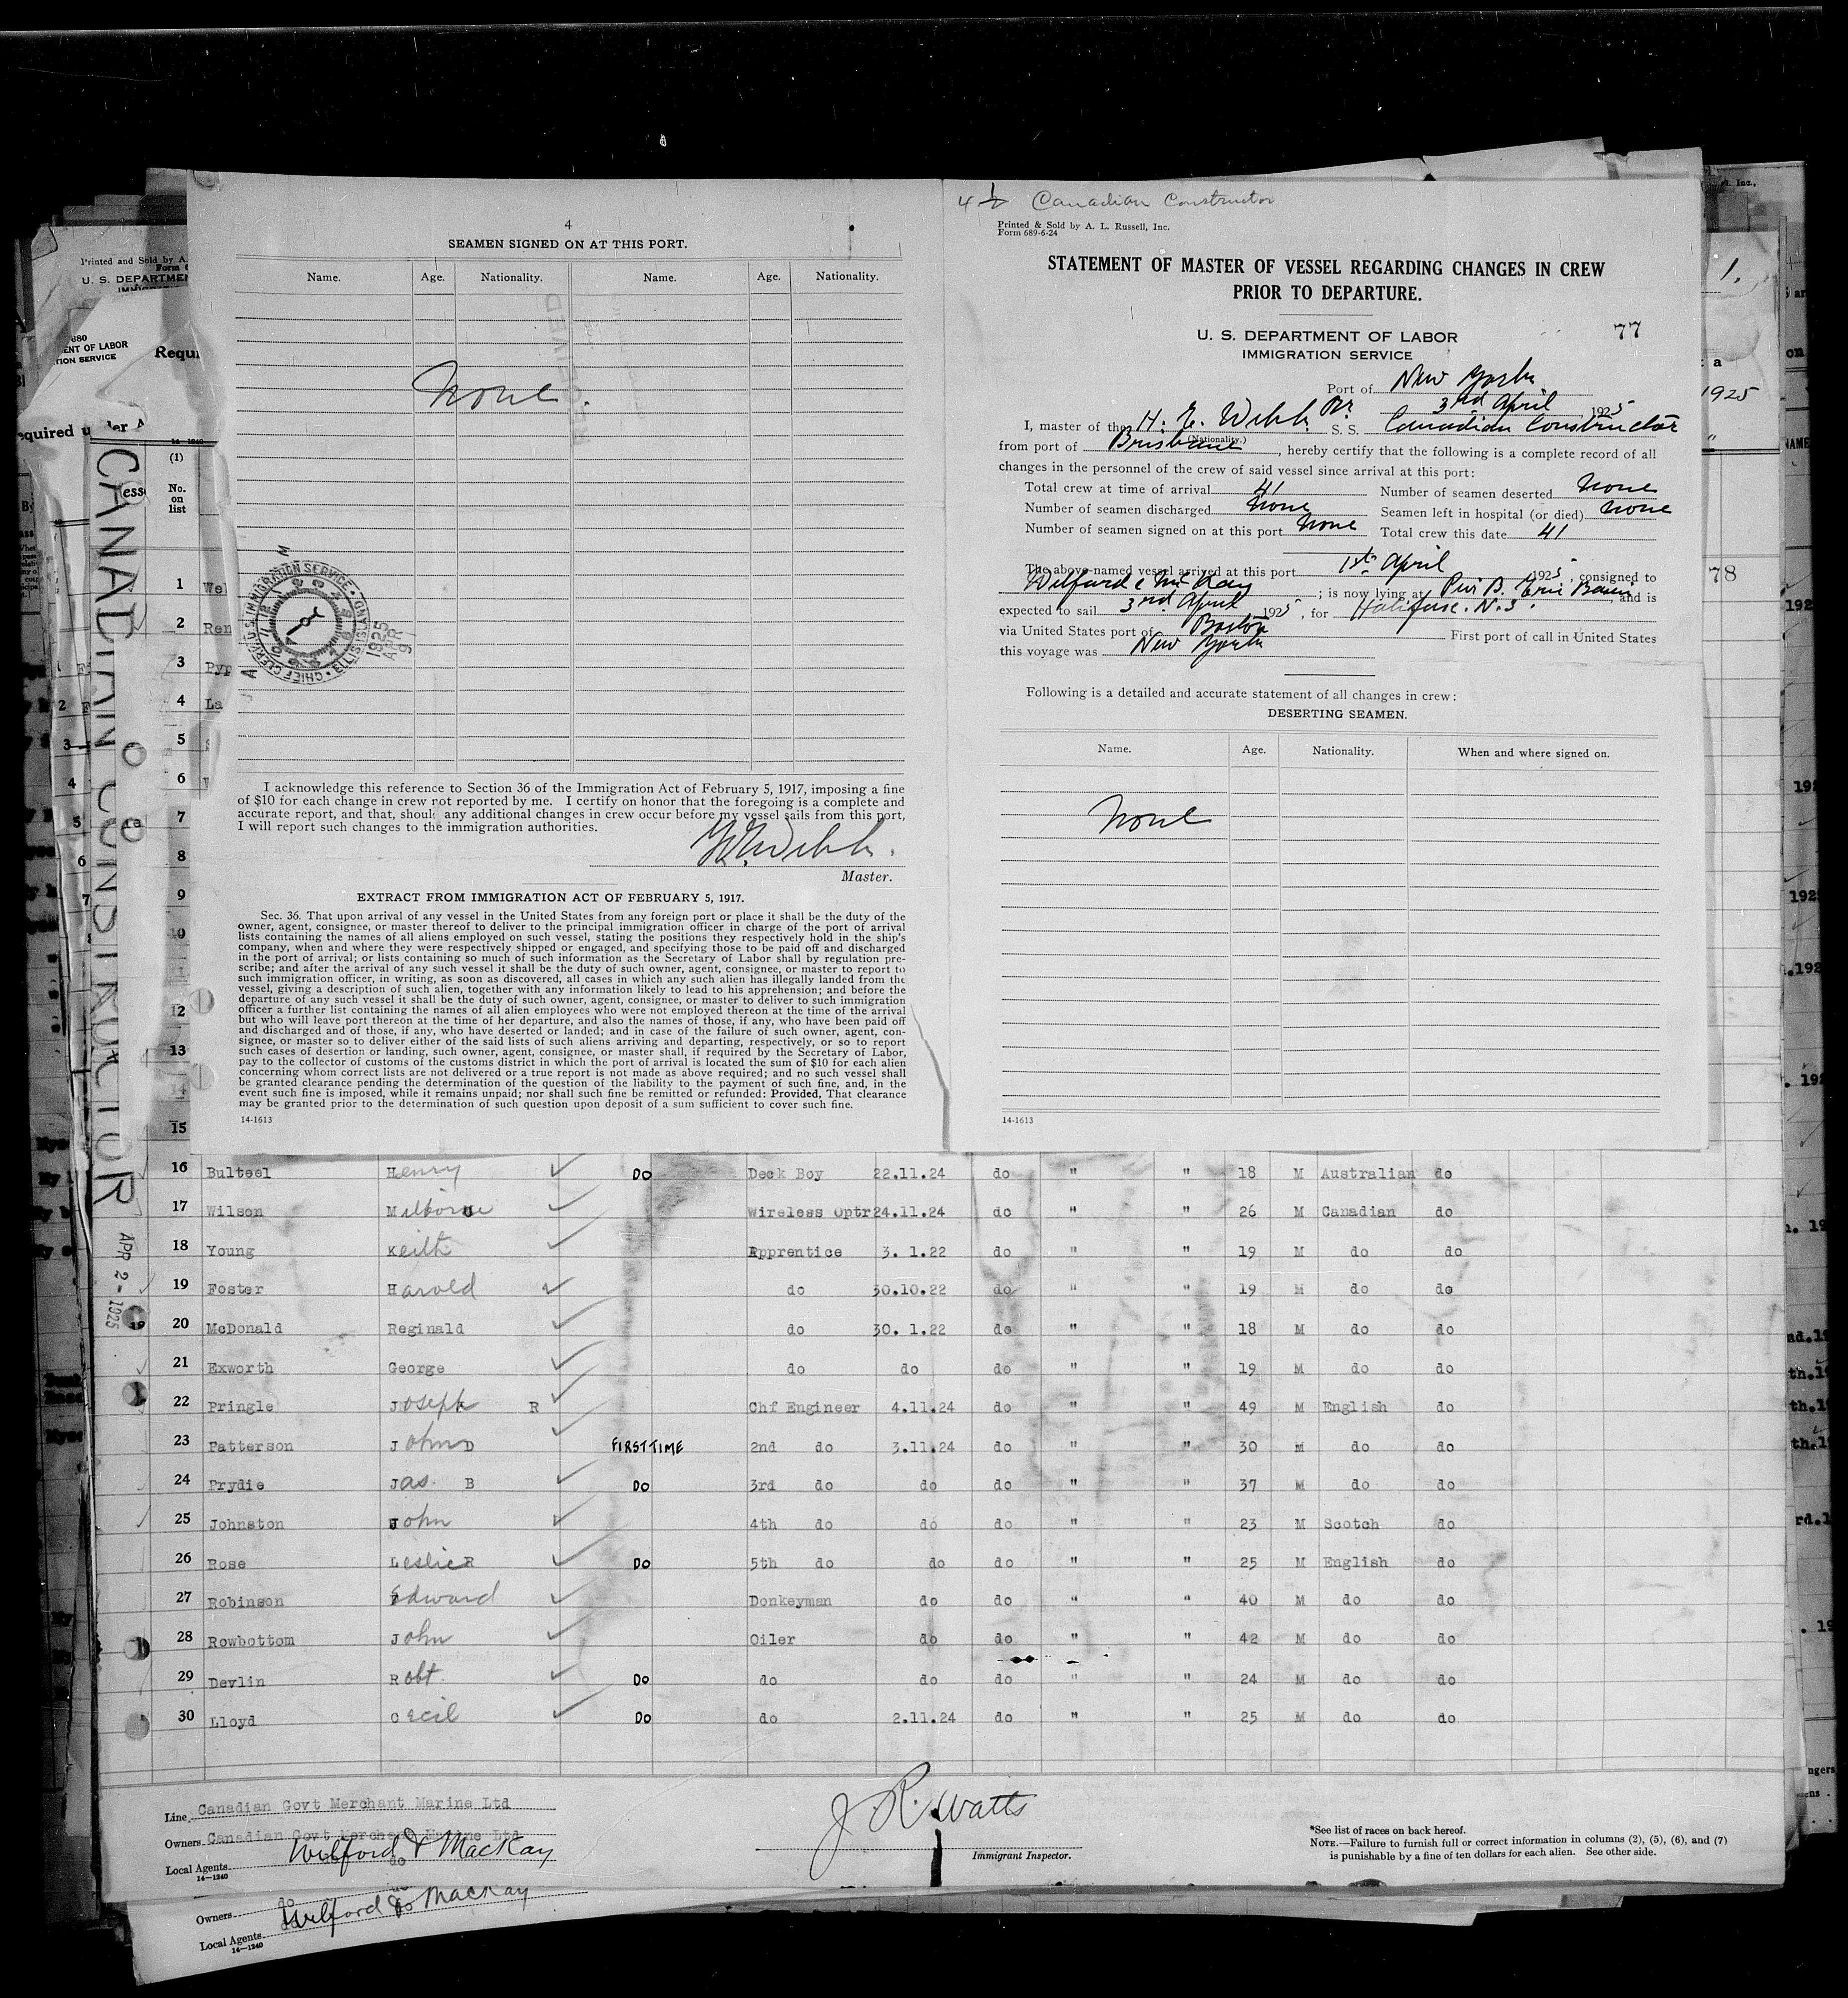 4
SEAMEN SIGNED ON AT THIS PORT.
Name. Age. Nationality. Name. Age. Nationality.
None.
I acknowledge this reference to Section 36 of the Immigration Act of February 5, 1917, imposing a fine
of $10 for each change in crew not reported by me. I certify on honor that the foregoing is a complete and
accurate report, and that, should any additional changes in crew occur before my vessel sails from this port,
I will report such changes to the immigration authorities.
H. E. Webb.
Master.
EXTRACT FROM IMMIGRATION ACT OF FEBRUARY 5, 1917.
Sec. 36. That upon arrival of any vessel in the United States from any foreign port or place it shall be the duty of the
owner, agent, consignee, or master thereof to deliver to the principal immigration officer in charge of the port of arrival
lists containing the names of all aliens employed on such vessel, stating the positions they respectively hold in the ship's
company, when and where they were respectively shipped or engaged, and specifying those to be paid off and discharged
in the port of arrival; or lists containing so much of such information as the Secretary of Labor shall by regulation pre-
scribe; and after the arrival of any such vessel it shall be the duty of such owner, agent, consignee, or master to report to
such immigration officer, in writing, as soon as discovered, all cases in which any such alien has illegally landed from the
vessel, giving a description of such alien, together with any information likely to lead to his apprehension; and before the
departure of any such vessel it shall be the duty of such owner, agent, consignee, or master to deliver to such immigration
officer a further list containing the names of all alien employees who were not employed thereon at the time of the arrival
but who will leave port thereon at the time of her departure, and also the names of those, if any, who have been paid off
and discharged and of those, if any, who have deserted or landed; and in case of the failure of such owner, agent, con-
signee, or master so to deliver either of the said lists of such aliens arriving and departing, respectively, or so to report
such cases of desertion or landing, such owner, agent, consignee, or master shall, if required by the Secretary of Labor,
pay to the collector of customs of the customs district in which the port of arrival is located the sum of $10 for each alien
concerning whom correct lists are not delivered or a true report is not made as above required; and no such vessel shall
be granted clearance pending the determination of the question of the liability to the payment of such fine, and, in the
event such fine is imposed, while it remains unpaid; nor shall such fine be remitted or refunded: Provided, That clearance
may be granted prior to the determination of such question upon deposit of a sum sufficient to cover such fine.
14-1613
CHIEF CLERK U.S. IMMIGRATION SERVICE · ELLIS ISLAND
1925
APR
Canadian Constructor
Printed & Sold by A. L. Russell, Inc.
Form 689-6-24
STATEMENT OF MASTER OF VESSEL REGARDING CHANGES IN CREW
PRIOR TO DEPARTURE.
U. S. DEPARTMENT OF LABOR
IMMIGRATION SERVICE
77
Port of New York
3rd April 1925
I, master of the H. E. Webb Br. S. S. Canadian Constructor
(Nationality.)
from port of Brisbane, hereby certify that the following is a complete record of all
changes in the personnel of the crew of said vessel since arrival at this port:
Total crew at time of arrival 41 Number of seamen deserted None
Number of seamen discharged None Seamen left in hospital (or died) None
Number of seamen signed on at this port None Total crew this date 41
The above-named vessel arrived at this port 1st April 1925, consigned to
Wilford & McKay; is now lying at Pier B. Erie Basin and is
expected to sail 3rd April 1925, for Halifax. N.S.
via United States port of Boston First port of call in United States
this voyage was New York
Following is a detailed and accurate statement of all changes in crew:
DESERTING SEAMEN.
Name. Age. Nationality. When and where signed on.
None
14-1613
CANADIAN CONSTRUCTOR
APR 2 - 1925
Printed and Sold by A.
U. S. DEPARTMEN
(1)
No.
on
list
1
2
3
4
5
6
7
8
9
10
12
13
14
15
78
1925
16 Bulteel Henry Do Deck Boy 22.11.24 do " " 18 M Australian do
17 Wilson Milborne Wireless Optr 24.11.24 do " " 26 M Canadian do
18 Young Keith Apprentice 3. 1.22 do " " 19 M do do
19 Foster Harold do 30.10.22 do " " 19 M do do
20 McDonald Reginald do 30. 1.22 do " " 18 M do do
21 Exworth George do do do " " 19 M do do
22 Pringle Joseph R Chf Engineer 4.11.24 do " " 49 M English do
23 Patterson John D FIRST TIME 2nd do 3.11.24 do " " 30 M do do
24 Prydie Jas. B Do 3rd do do do " " 37 M do do
25 Johnston John 4th do do do " " 23 M Scotch do
26 Rose Leslie R Do 5th do do do " " 25 M English do
27 Robinson Edward Donkeyman do do " " 40 M do do
28 Rowbottom John Oiler do do " " 42 M do do
29 Devlin Robt Do do do do " " 24 M do do
30 Lloyd Cecil Do do 2.11.24 do " " 25 M do do
Line Canadian Govt Merchant Marine Ltd
Owners Canadian Govt Merchant Marine Ltd
Local Agents Wilford & MacKay
do
14-1240
J R. Watts
Immigrant Inspector.
*See list of races on back hereof.
NOTE.—Failure to furnish full or correct information in columns (2), (5), (6), and (7)
is punishable by a fine of ten dollars for each alien. See other side.
Owners do
Local Agents Wilford & MacKay
14-1240